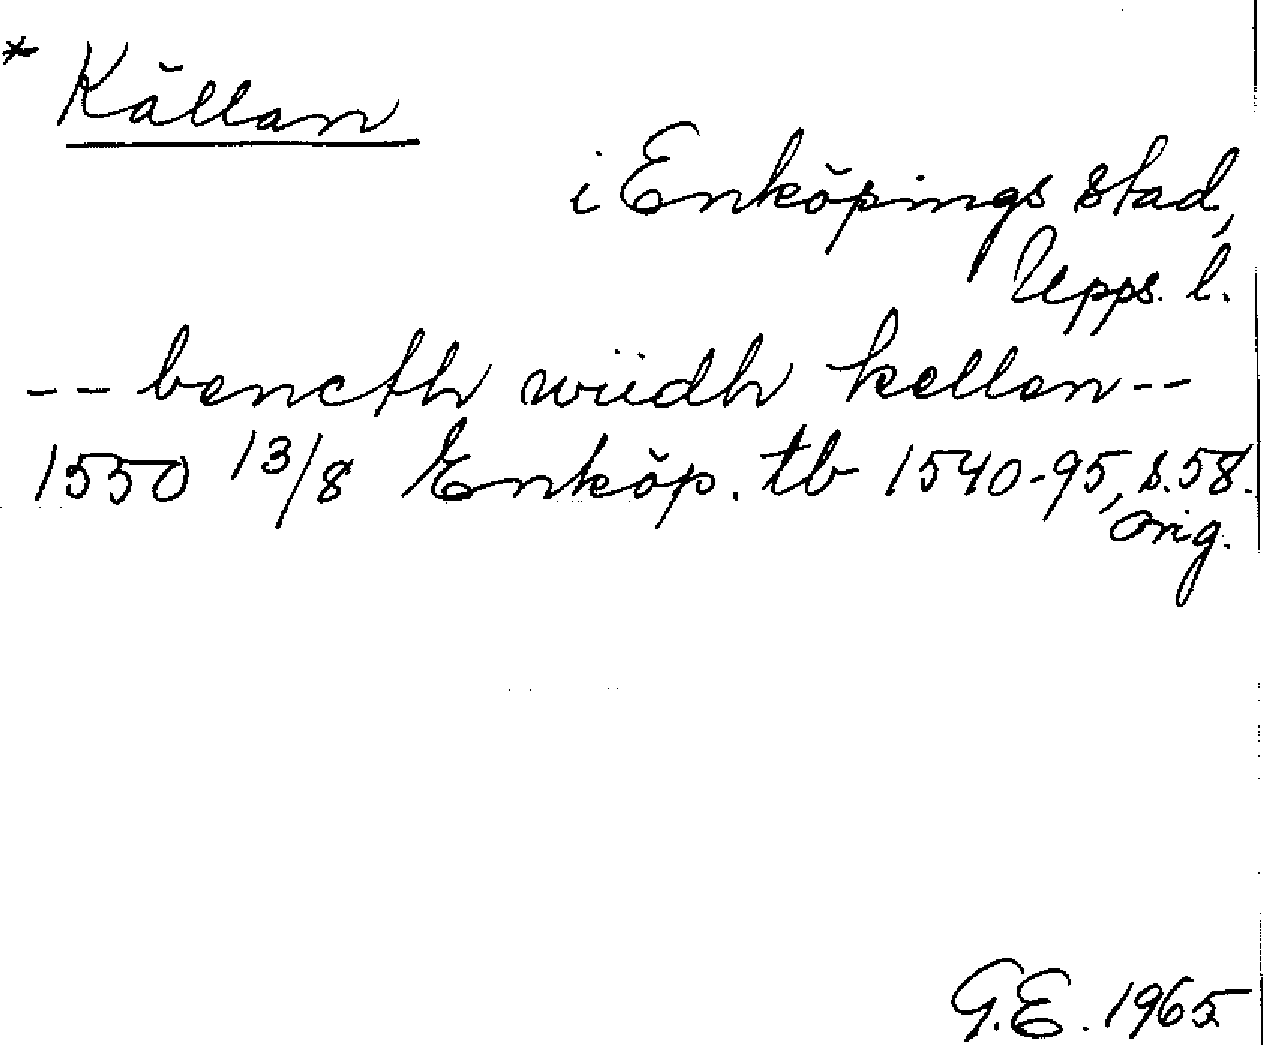 * Källan
i Enköpings stad,
Upps. l.
-- bencth wüdh kellen --
1550 13/8 Enköp. tb 1540-95, s. 58.
Orig.
G.E. 1965